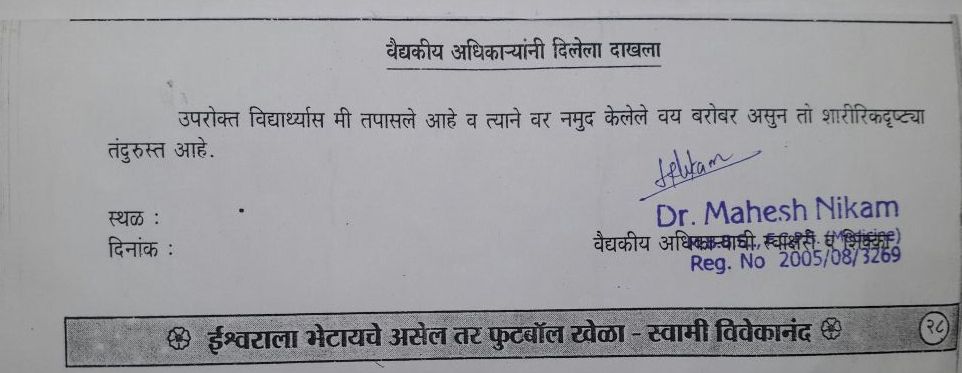 वैद्यकीय अधिकाऱ्यांनी दिलेला दाखला
उपरोक्त विद्यार्थ्यास मी तपासले आहे व त्याने वर नमुद केलेले वय बरोबर असुन तो शारीरिकदृष्ट्या
तंदुरुस्त आहे.
स्थळ :
Dr. Mahesh Nikam
दिनांक :
वैद्यकीय अधिकाऱ्याची स्वाक्षरी व शिक्का
Reg. No 2005/08/3269
ईश्वराला भेटायचे असेल तर फुटबॉल खेळा - स्वामी विवेकानंद
२८